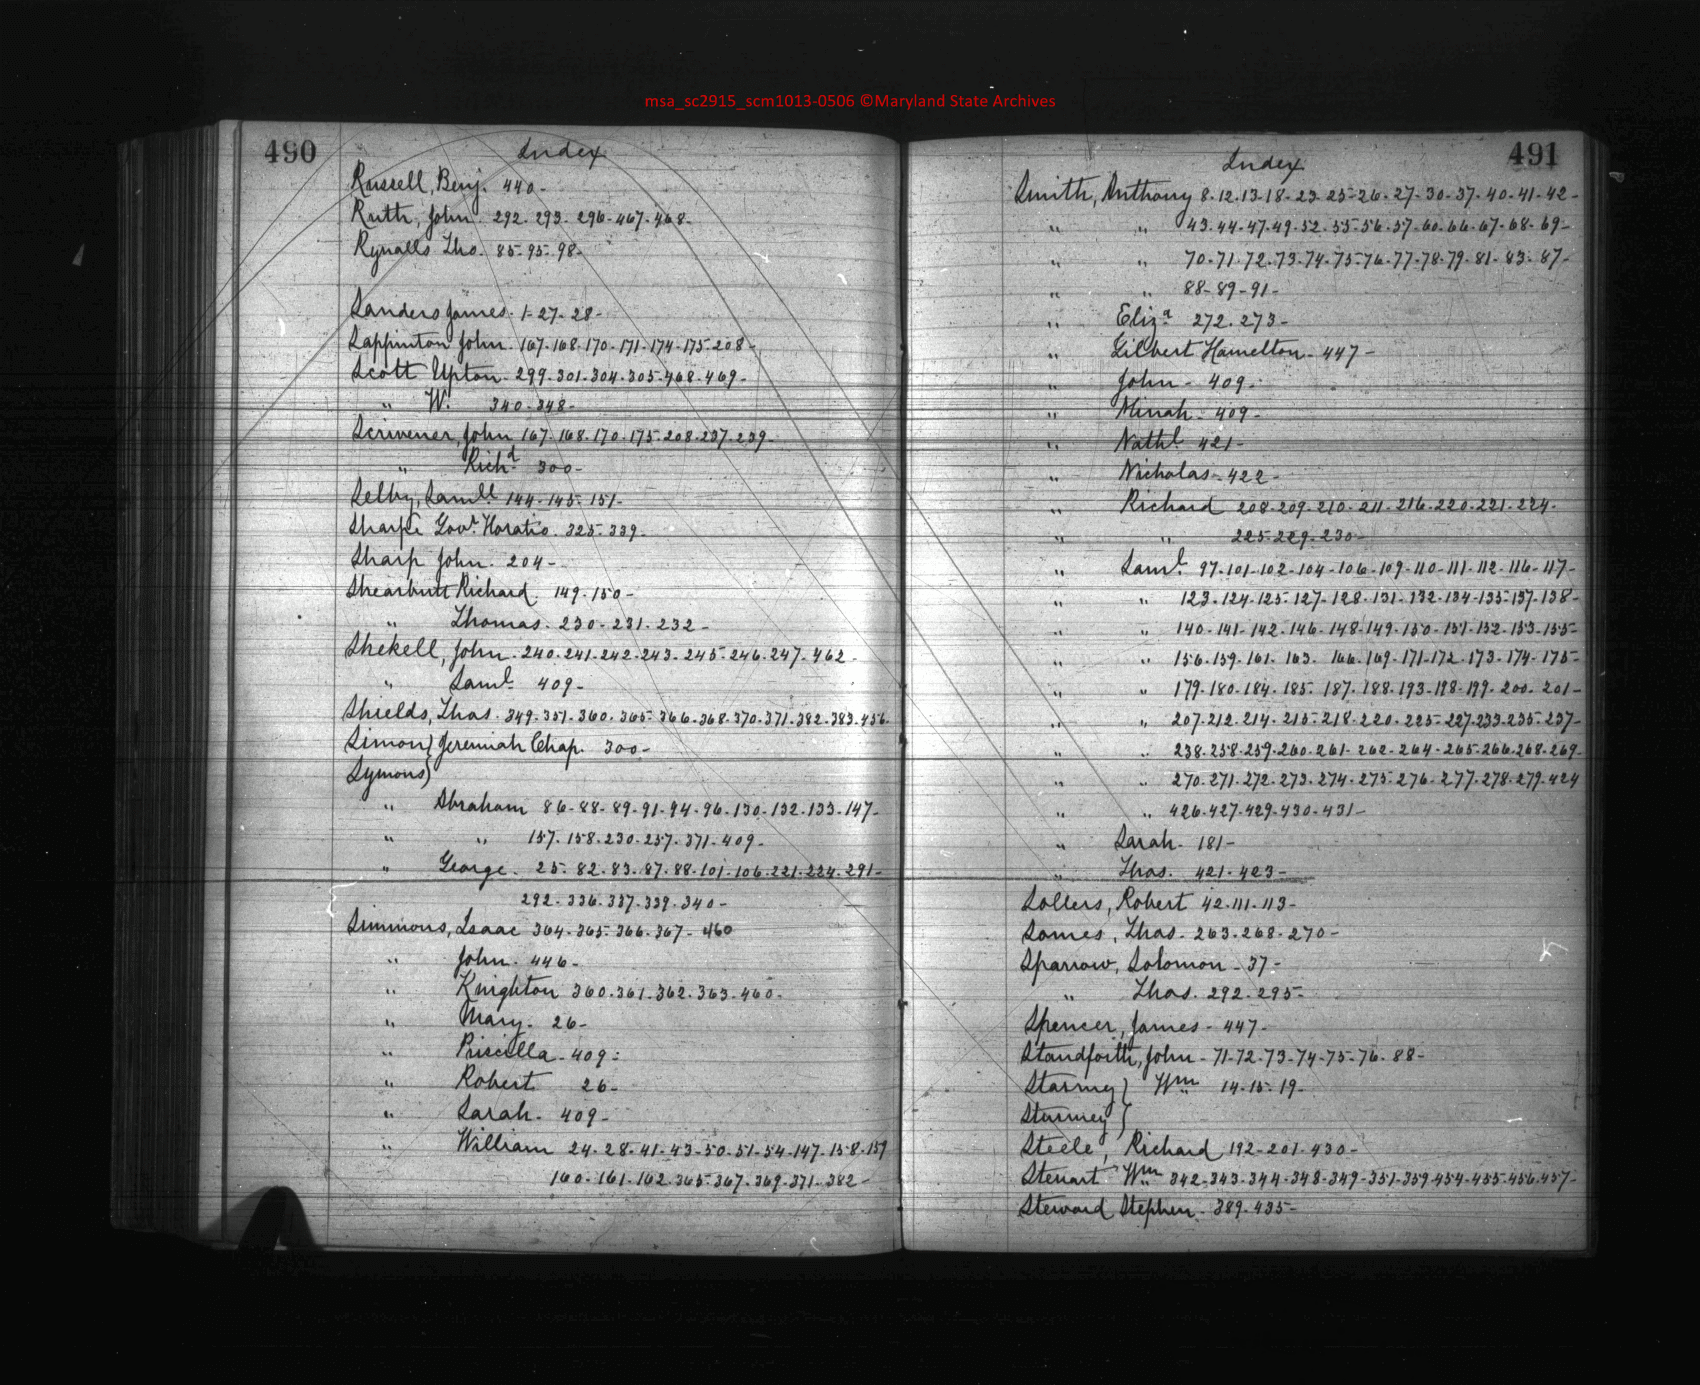 msa_sc2915_scm1013-0506 ©Maryland State Archives
490
Index
Russell, Benj. 440-
Ruth, John 292-293-296-467-468-
Rynalls Tho. 85-95-98-
Sanders James. 1-27-28-
Sappinton John. 167-168-170-171-174-175-208-
Scott Upton. 299-301-304-305-468-469-
" W. 340-348-
Scrivener, John 167-168-170-175-208-237-239-
" Richd. 300-
Selby, Samll. 144-145-151-
Sharpe Govr. Horatio. 325-339-
Sharp John. 204-
Shearbutt Richard. 149-150-
" Thomas. 230-231-232-
Shekell, John. 240-241-242-243-245-246-247-462-
" Saml. 409-
Shields, Thos. 349-351-360-365-366-368-370-371-382-383-456-
Simon} Jeremiah Chap. 300-
Symons}
" Abraham 86-88-89-91-94-96-130-132-133-147-
" " 157-158-230-257-371-409-
" George. 25-82-83-87-88-101-106-221-224-291-
292-336-337-339-340-
Simmons, Isaac 364-365-366-367-460
" John. 446-
" Knighton 360-361-362-363-460-
" Mary. 26-
" Priscilla. 409-
" Robert 26-
" Sarah. 409-
" William 24-28-41-43-50-51-54-147-158-159
160-161-162-365-367-369-371-382-
491
Index
Smith, Anthony 8-12-13-18-23-25-26-27-30-37-40-41-42-
" " 43-44-47-49-52-55-56-57-60-66-67-68-69-
" " 70-71-72-73-74-75-76-77-78-79-81-83-87-
" " 88-89-91-
" Eliza. 272-273-
" Gilbert Hamelton. 447-
" John. 409-
" Minah. 409-
" Nathl. 421-
" Nicholas. 422-
" Richard 208-209-210-211-216-220-221-224-
" " 225-229-230-
" Saml. 97-101-102-104-106-109-110-111-112-116-117-
" " 123-124-125-127-128-131-132-134-135-137-138-
" " 140-141-142-146-148-149-150-151-152-153-155-
" " 156-159-161-163-166-169-171-172-173-174-175-
" " 179-180-184-185-187-188-193-198-199-200-201-
" " 207-212-214-215-218-220-225-227-233-235-237-
" " 238-258-259-260-261-262-264-265-266-268-269-
" " 270-271-272-273-274-275-276-277-278-279-424
" " 426-427-429-430-431-
" Sarah. 181-
" Thos. 421-423-
Sollers, Robert 42-111-113-
Somes, Thos. 263-268-270-
Sparrow, Solomon. 37-
" Thos. 292-295-
Spencer, James. 447-
Standforth, John. 71-72-73-74-75-76-88-
Starmey} Wm. 14-15-19-
Sturmey}
Steele, Richard 192-201-430-
Steuart Wm. 342-343-344-348-349-351-359-454-455-456-457-
Steward Stephen. 389-435-